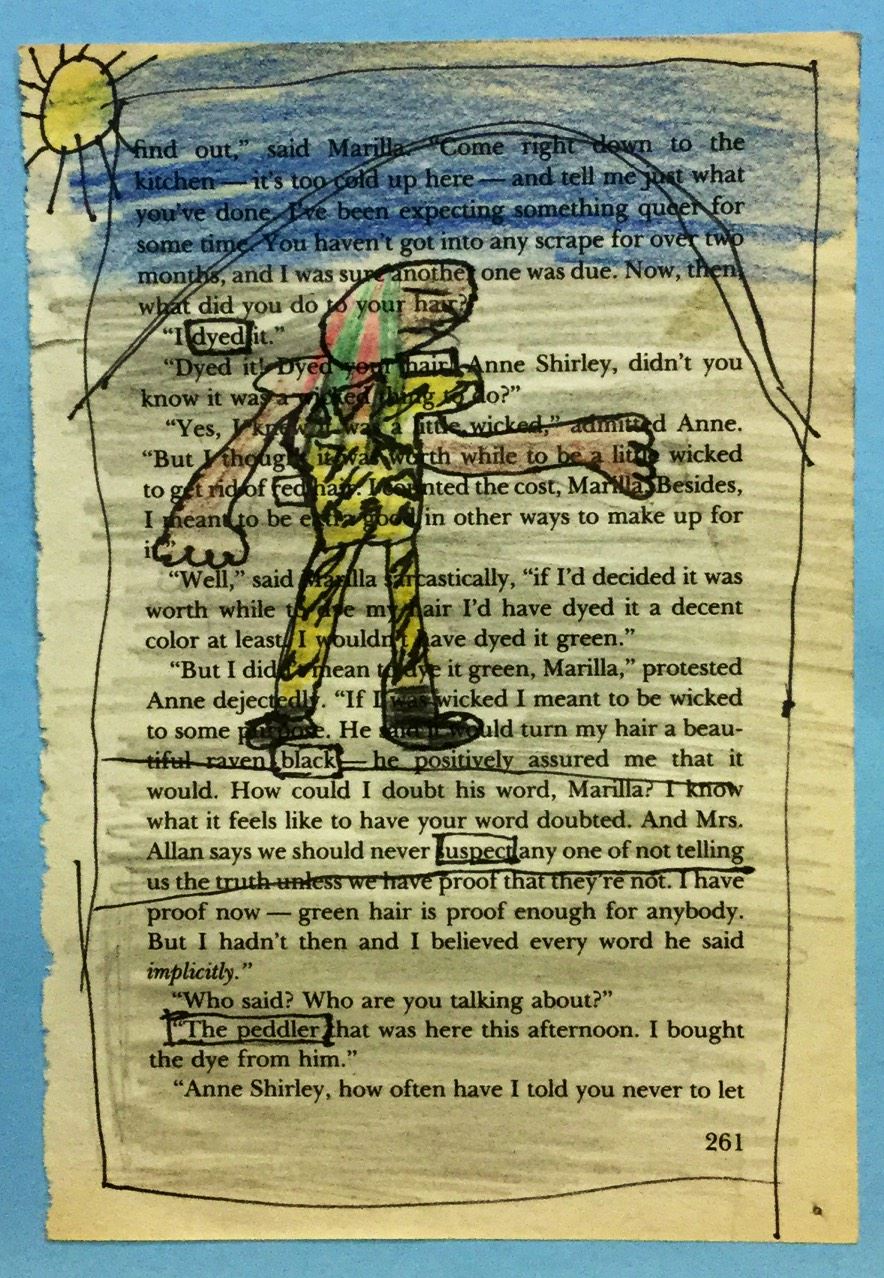 find out,” said Marilla. “Come right down to the
kitchen — it’s too cold up here — and tell me just what
you’ve done. I’ve been expecting something queer for
some time. You haven’t got into any scrape for over two
months, and I was sure another one was due. Now, then,
what did you do to your hair?
“I dyed it.”
“Dyed it! Dyed your hair! Anne Shirley, didn’t you
know it was a wicked thing to do?”
“Yes, I knew it was a little wicked,” admitted Anne.
“But I thought it was worth while to be a little wicked
to get rid of red hair. I counted the cost, Marilla. Besides,
I meant to be extra good in other ways to make up for
it.”
“Well,” said Marilla sarcastically, “if I’d decided it was
worth while to dye my hair I’d have dyed it a decent
color at least. I wouldn’t have dyed it green.”
“But I didn’t mean to dye it green, Marilla,” protested
Anne dejectedly. “If I was wicked I meant to be wicked
to some purpose. He said it would turn my hair a beau-
tiful raven black — he positively assured me that it
would. How could I doubt his word, Marilla? I know
what it feels like to have your word doubted. And Mrs.
Allan says we should never suspect any one of not telling
us the truth unless we have proof that they’re not. I have
proof now — green hair is proof enough for anybody.
But I hadn’t then and I believed every word he said
implicitly.”
“Who said? Who are you talking about?”
“The peddler that was here this afternoon. I bought
the dye from him.”
“Anne Shirley, how often have I told you never to let
261